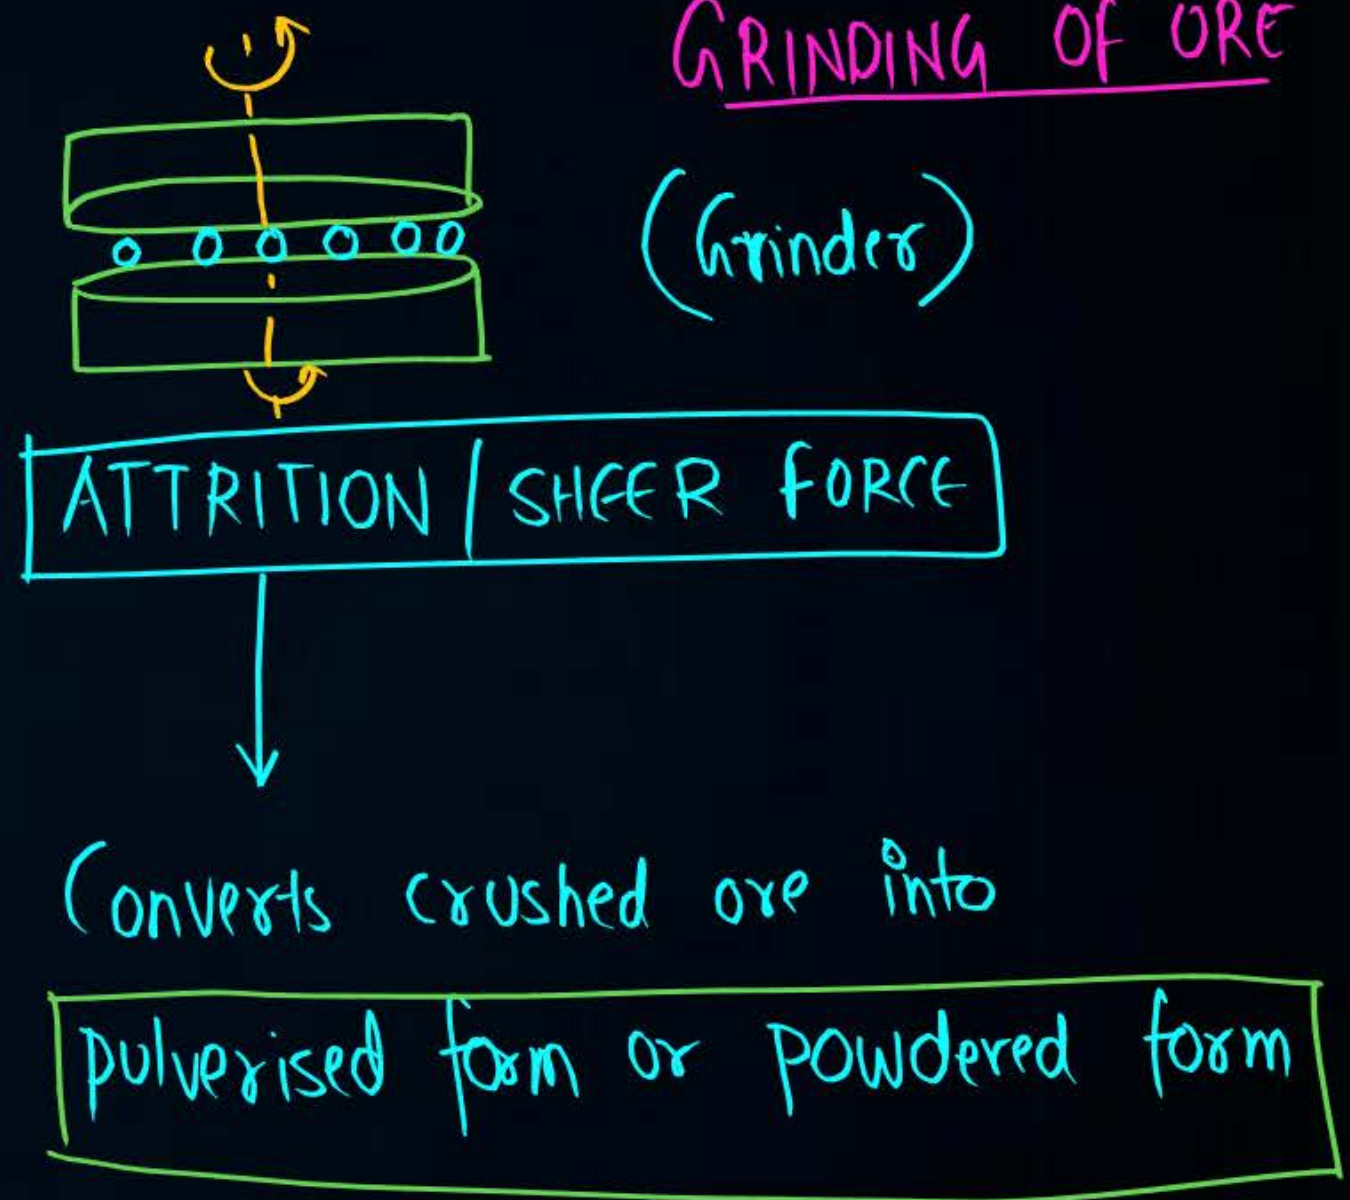 GRINDING OF ORE
(Grinder)
ATTRITION | SHEER FORCE
Converts crushed ore into
pulverised form or powdered form